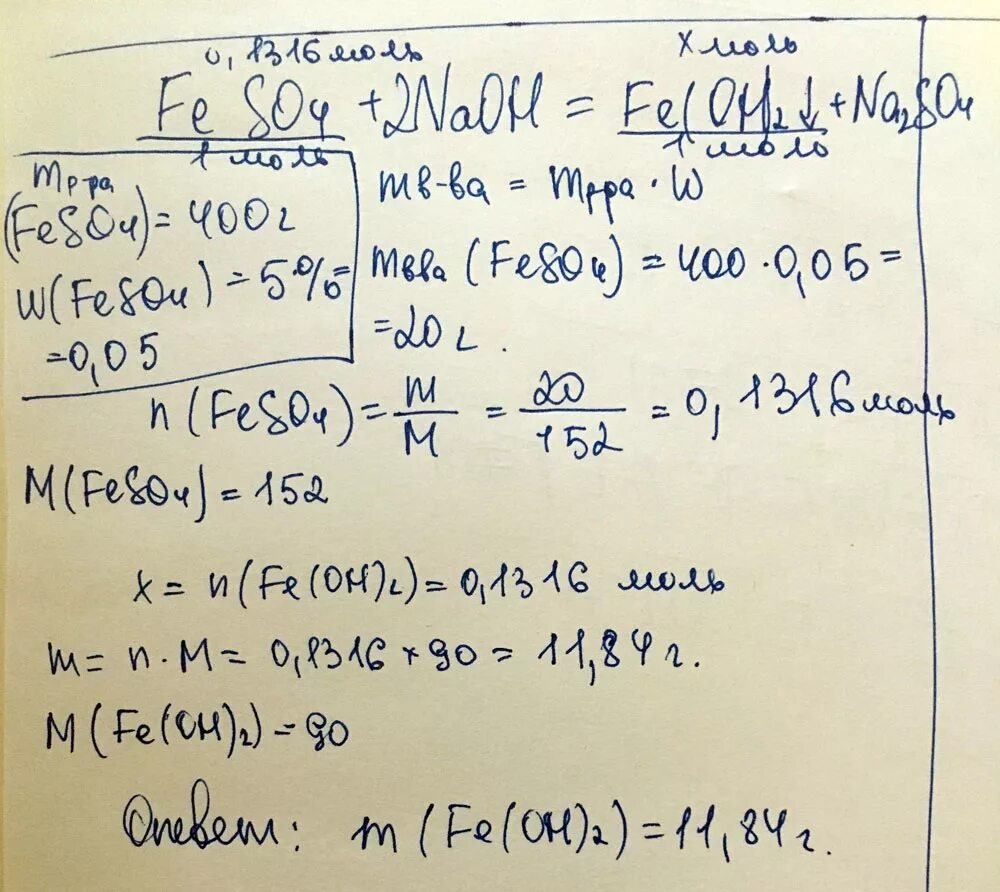 0,1316 моль х моль
FeSO₄ + 2NaOH = Fe(OH)₂↓ + Na₂SO₄
1 моль 1 моль
mр-ра
(FeSO₄) = 400 г
W(FeSO₄) = 5% =
=0,05
mв-ва = mр-ра · W
mв-ва (FeSO₄) = 400 · 0,05 =
=20 г.
n(FeSO₄) = m/M = 20/152 = 0,1316 моль
M(FeSO₄) = 152
x = n(Fe(OH)₂) = 0,1316 моль
m = n · M = 0,1316 × 90 = 11,84 г.
M(Fe(OH)₂) = 90
Ответ: m(Fe(OH)₂) = 11,84 г.